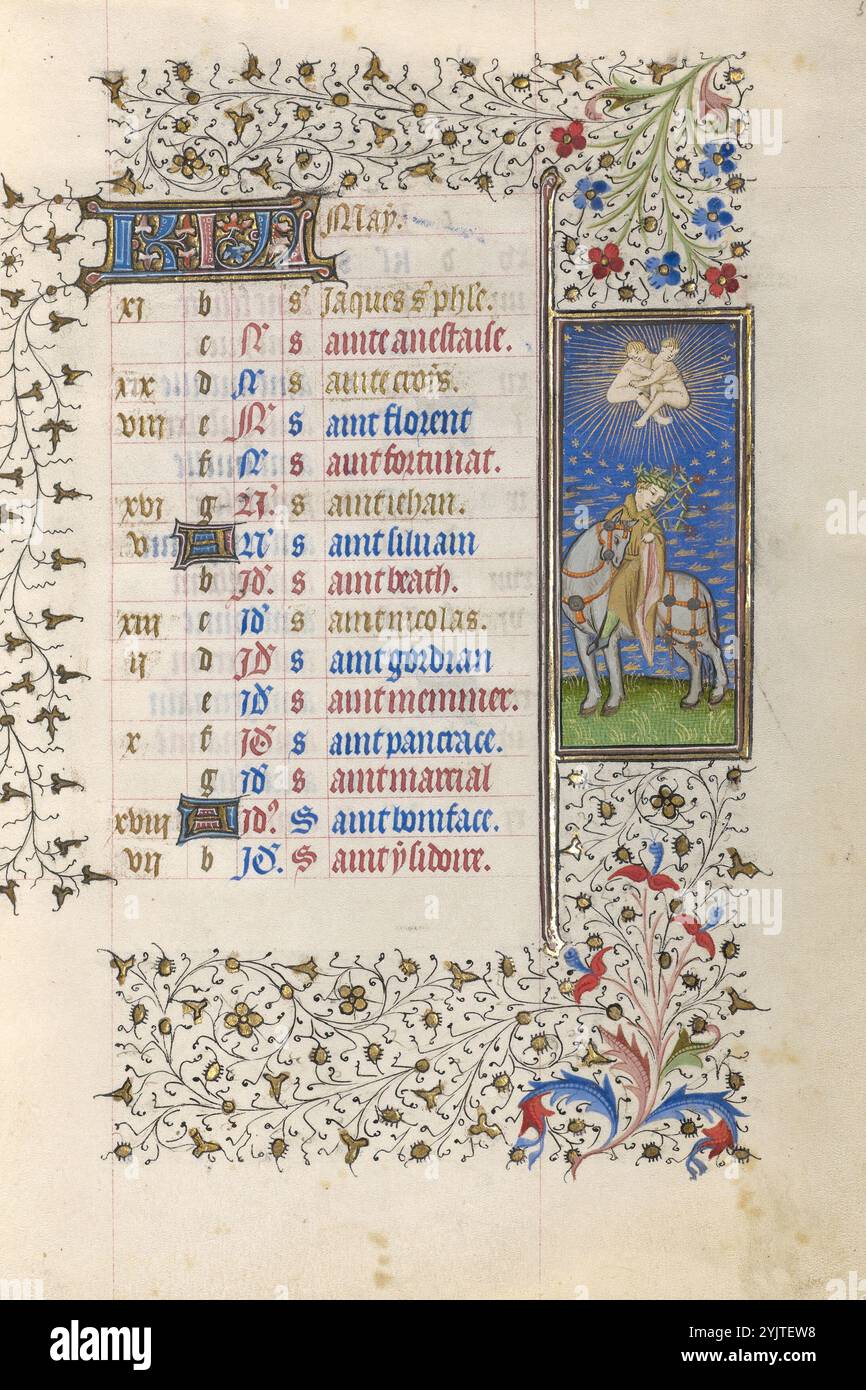 KL May.
xi b s Jaques s phle.
c N s ainte anestaise.
xix d N s ainte crois.
viii e N s aint florent
f N s aint fortunat.
xvi g N. s aint iehan.
v A N s aint siluain
b Jd. s aint beath.
xiii c Jd s aint nicolas.
ii d Jd s aint gordian
e Jd s aint memmer.
x f Jd s aint pancrace.
g Jd s aint marcial
xviii A Jd S aint boniface.
vii b Jd. S aint ysidoire.
alamy
Image ID: 2YJTEW8
www.alamy.com